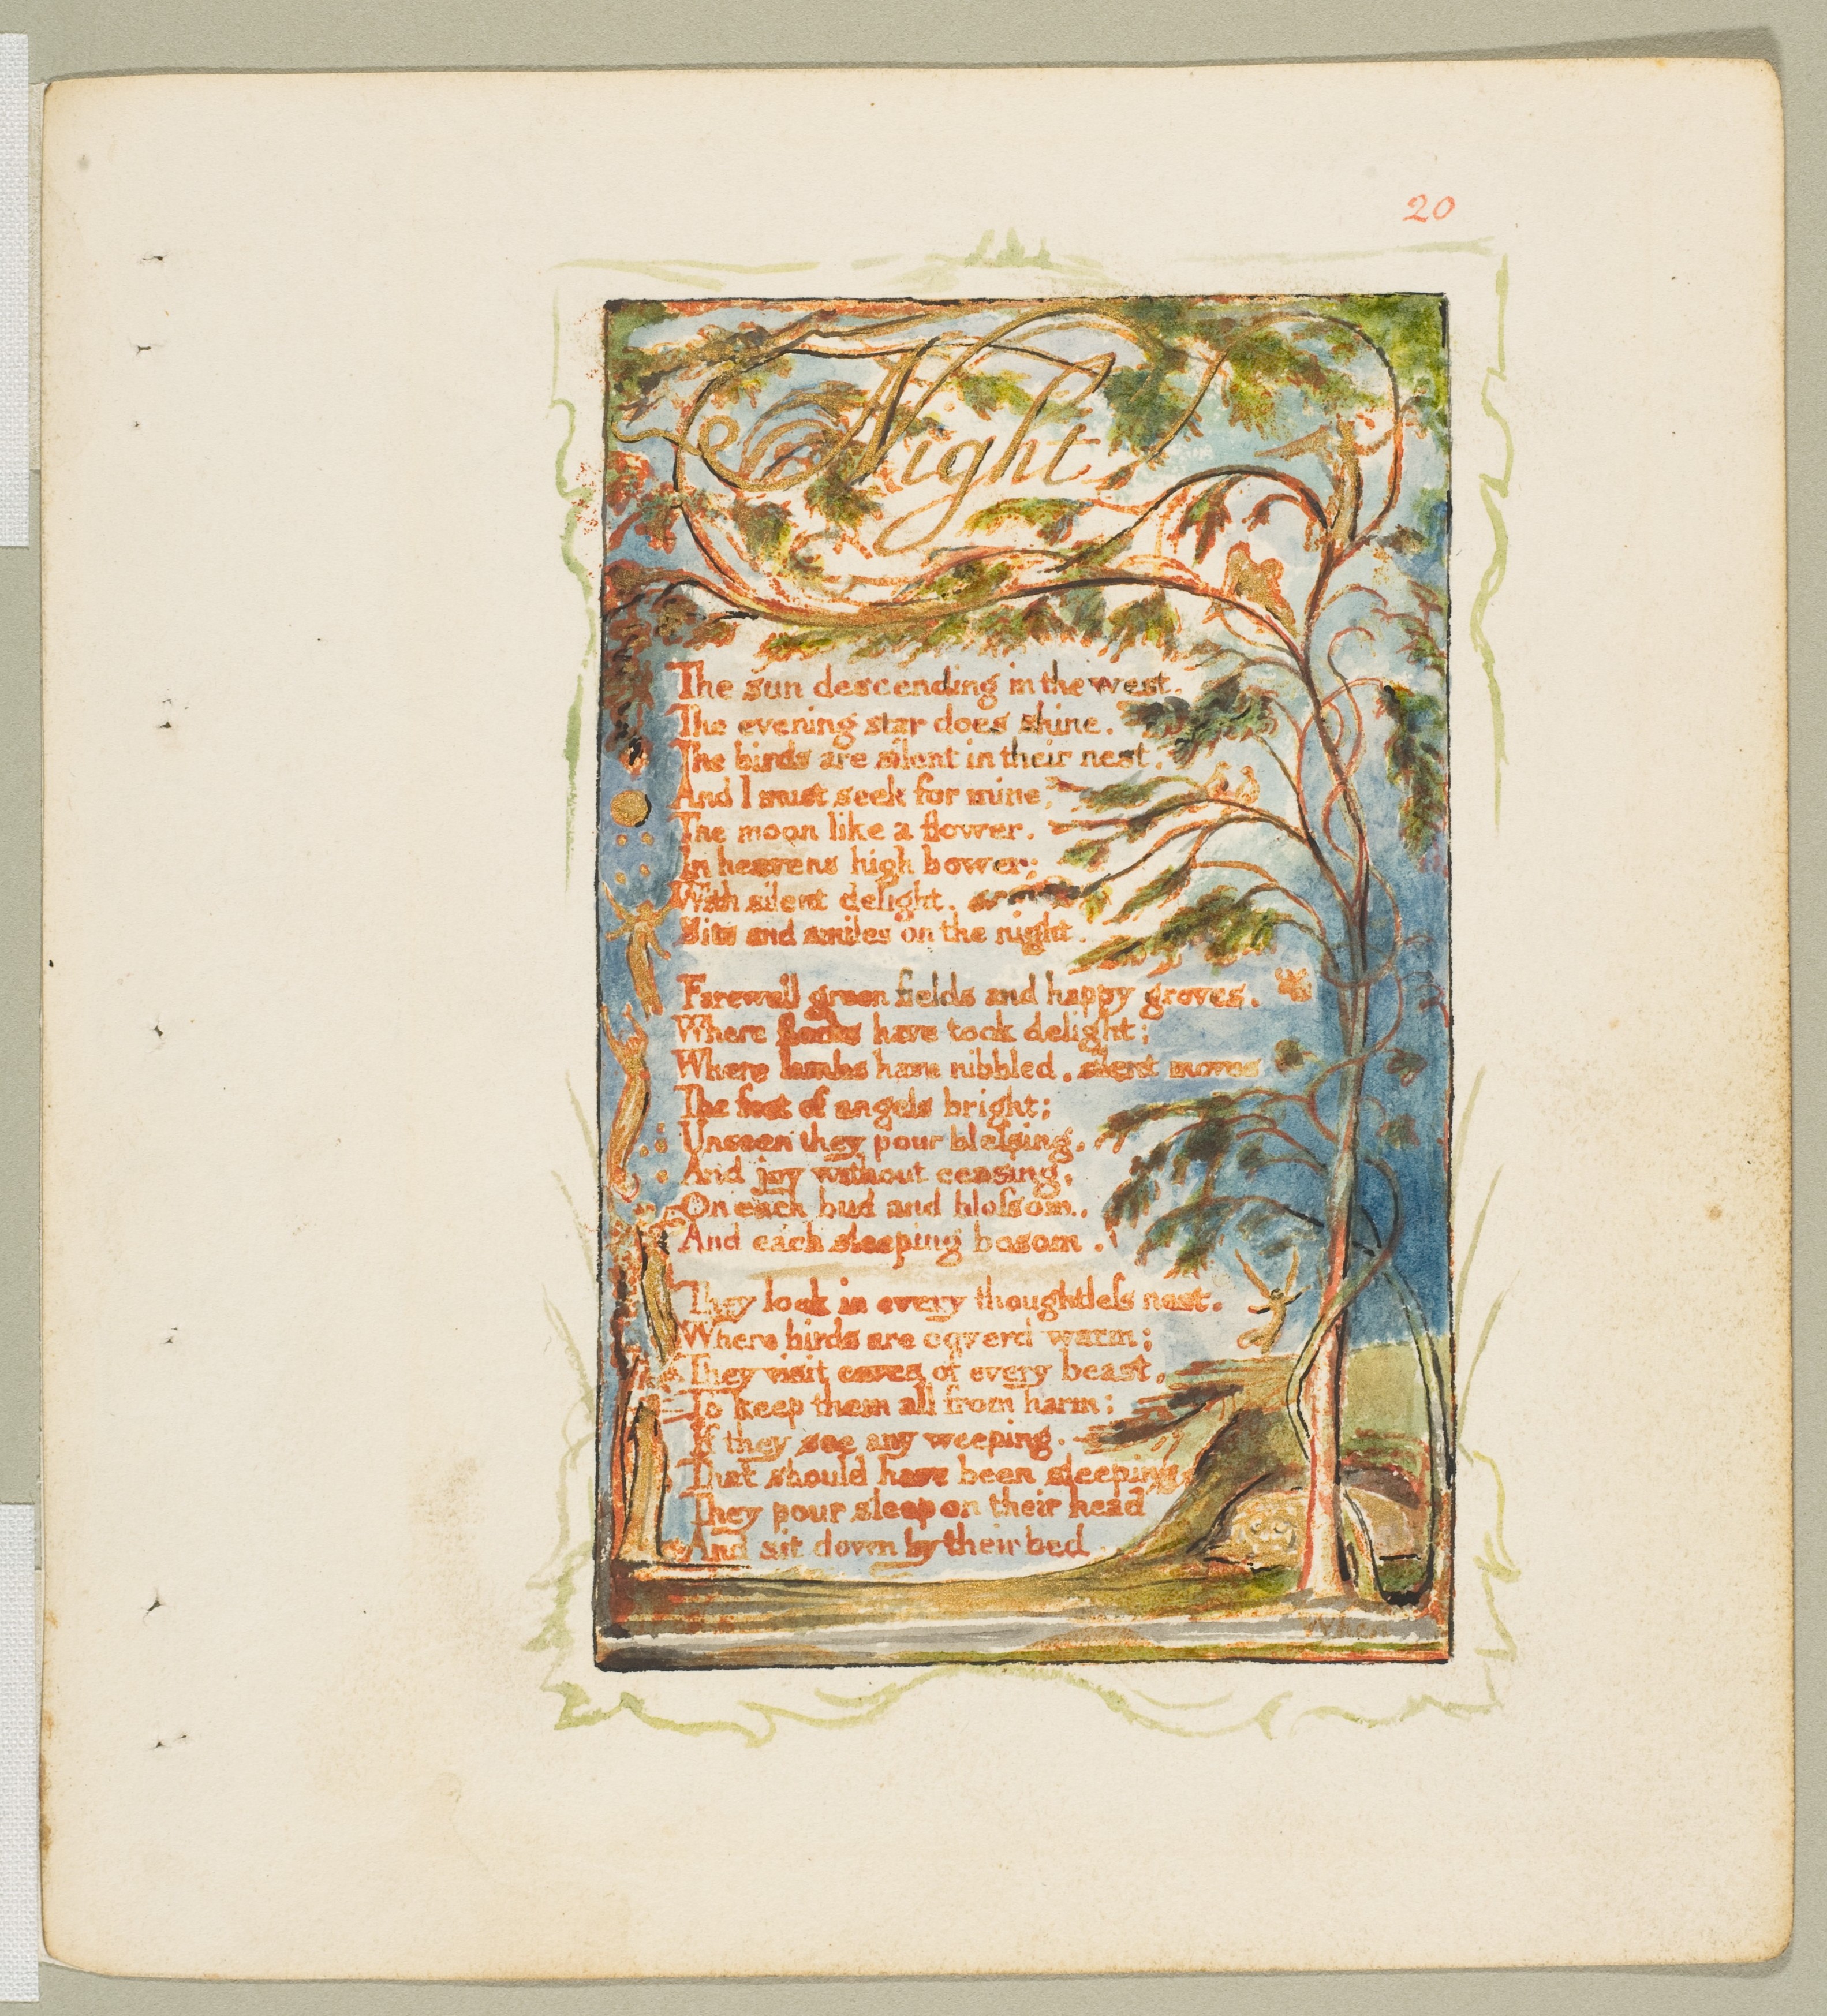 20
Night
The sun descending in the west.
The evening star does shine.
The birds are silent in their nest.
And I must seek for mine,
The moon like a flower.
In heavens high bower;
With silent delight.
Sits and smiles on the night.
Farewell green fields and happy groves.
Where flocks have took delight;
Where lambs have nibbled, silent moves
The feet of angels bright;
Unseen they pour blessing.
And joy without ceasing,
On each bud and blossom.
And each sleeping bosom.
They look in every thoughtless nest.
Where birds are coverd warm;
They visit caves of every beast,
To keep them all from harm;
If they see any weeping.
That should have been sleeping
They pour sleep on their head
And sit down by their bed.
When